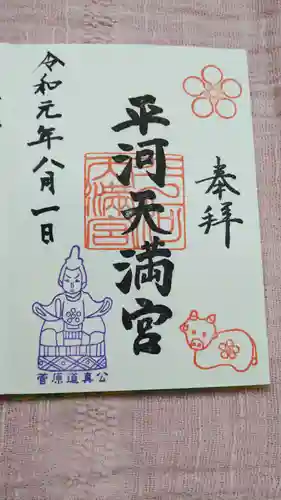 奉拝
平河天満宮
令和元年八月一日
菅原道真公